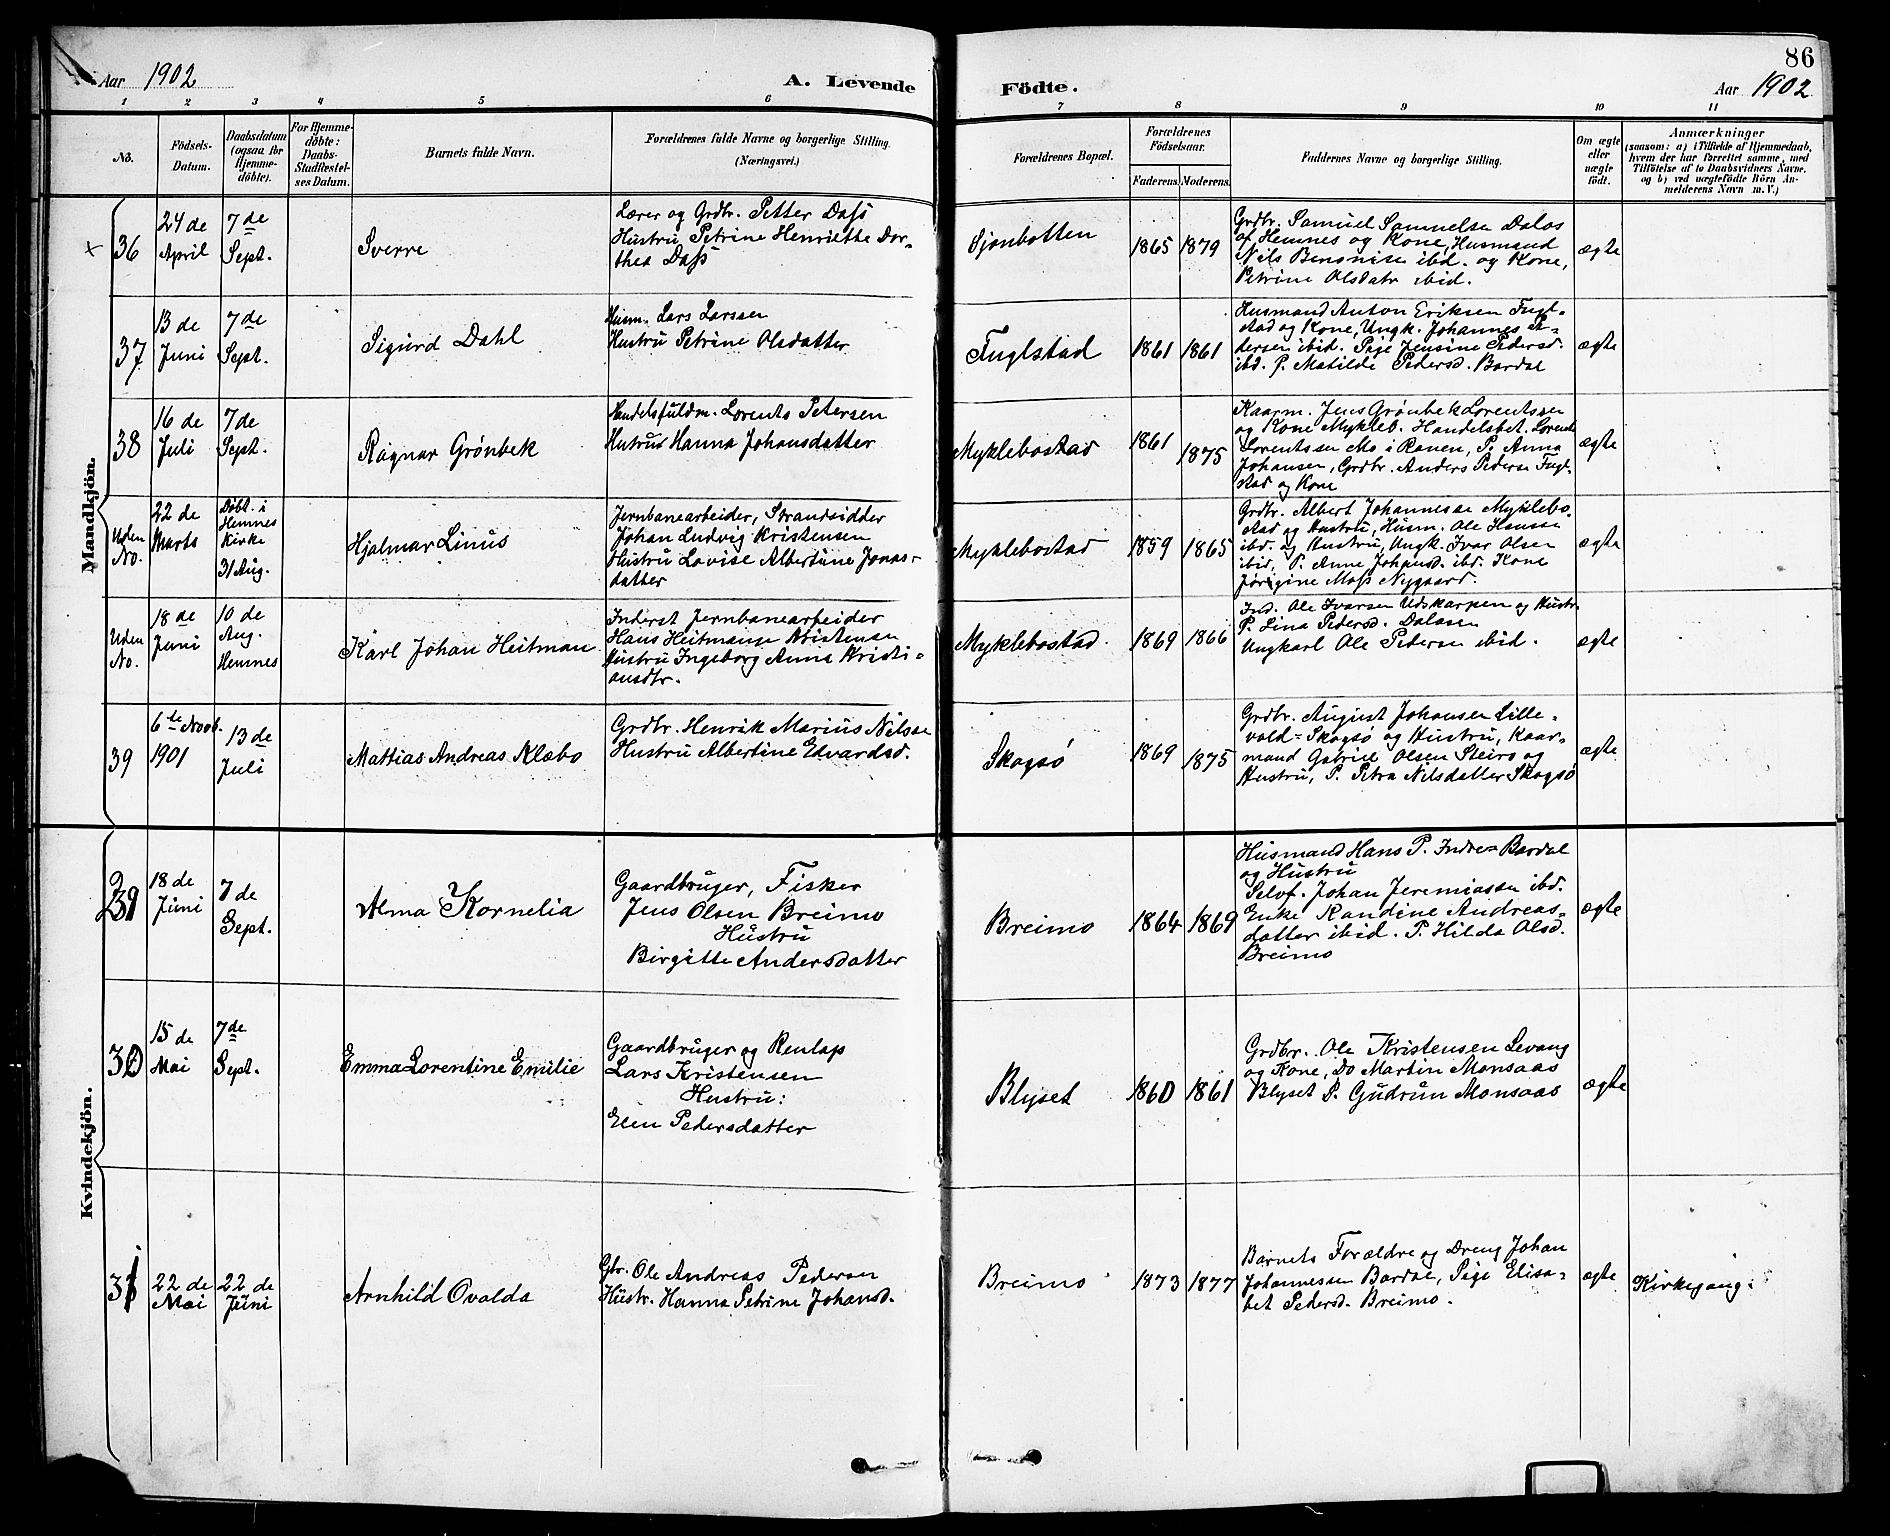 86
Aar 1902 A. Levende Födte. Aar 1902
1 2 3 4 5 6 7 8 9 10 11
No. Födsels-Datum. Daabsdatum (ogsaa for Hjemme-döbte). For Hjemme-döbte: Daabs-Stadfæstel-ses Datum. Barnets fulde Navn. Forældrenes fulde Navne og borgerlige Stilling. (Næringsvei.) Forældrenes Bopæl. Forældrenes Födselsaar. Faderens. Moderens. Faddernes Navne og borgerlige Stilling. Om ægte eller uægte födt. Anmærkninger
(saasom: a) i Tilfælde af Hjemmedaab,
hvem der har forrettet samme, med
Tilföielse af to Daabsvidners Navne.
og b) ved uægtefödte Börn An-
melderens Navn m. V.)
Mandkjön.
+ 36
24 de April
7 de Sept.
Sverre
Lærer og Grdbr. Petter Dass
Hustru Petrine Henriette Dor-
thea Dass
Sjonbotten
1865 1879
Grdbr. Samuel Samuelse Dalos
af Hemnes og Kone, Husmand
Nils Bensnise ibid. og Kone,
Petrine Olsdatr ibid.
ægte
37
13 de Juni
7 de Sept.
Sigurd Dahl
Husm. Lars Larssen
Hustru Petrine Olsdatter
Fuglstad
1861 1861
Husmand Anton Eriksen Fugl-
stad og Kone, Ungk. Johannes
dersen ibid. Pige Jensine Pedersd.
ibd. P. Matilde Pedersd. Bardal
ægte
38
16 de Juli
7 de Sept.
Ragnar Grönbek
Handelsfuldm. Lorents Petersen
Hutrus Hanna Johansdatter
Myklebostad
1861 1875
Kaarm. Jens Grønbek Lorentssen
og Kone Mykleb. Handelsbet. Lorents
Lorentssen Mo i Ranen, P. Anna
Johansen, Grdbr. Anders Pederse Fugl-
stad og Kone
ægte
Uden No.
22 de Marts
Döbt. i
Hemnes
Kirke
31 Aug.
Hjalmar Linus
Jernbanearbeider, Strandsidder
Johan Ludvig Kristensen
Hustru Lovise Albertine Jonas-
datter
Myklebostad
1859 1865
Grdbr. Albert Johannesse Myklebo-
stad og Hustru, Husm. Ole Hansse
ibd. og Hustru, Ungk. Ivar Olsen
ibid, P. Anne Johansd. ibd. Kone
Jørigine Moss Nygaard.
ægte
Uden No.
18 de Juni
10 de Aug. Hemnes
Karl Johan Heitman
Inderst Jernbanearbeider
Hans Heitmanse Kristensen
Hustru Ingeborg Anna Kristi-
ansdtr.
Myklebostad
1869 1866
Ind. Ole Ivarsen Udskarpen og Hustr.
P. Lina Pedersd. Dalosen
Ungkarl Ole Pedersen ibid.
ægte
39
6 te Novb. 1901
13 de Juli
Mattias Andreas Klæbo
Grdbr. Henrik Marius Nilsse
Hustru Albertine Edvardsd.
Skogsø
1869 1875
Grdbr. August Johansen Lille-
vold=Skogsø og Hustru, Kaar-
mand Gabriel Olsen Steiro og
Hustru, P. Petra Nilsdatter Skogsø
ægte
Kvindekjön.
29
18 de Juni
7 de Sept.
Alma Kornelia
Gaardbruger, Fisker
Jens Olsen Breimo
Hustru
Birgitte Andersdatter
Breimo
1864 1869
Husmand Hans P. Indre=Bardal
og Hustru
Selvf. Johan Jeremiassen ibd.
Enke Randine Andreas-
datter ibid. P. Hilda Olsd.
Breimo
ægte
30
15 de Mai
7 de Sept.
Emma Lorentine Emilie
Gaardbruger og Renlap
Lars Kristensen
Hustru:
Elen Pedersdatter
Blyset
1860 1861
Grdbr. Ole Kristensen Levang
og Kone, Do Martin Monsaas
Blyset P. Gudrun Monsaas
ægte
31
22 de Mai
22 de Juni
Arnhild Ovalda
Gbr. Ole Andreas Pedersen
Hustr. Hanna Petrine Johansd.
Breimo
1873 1877
Barnets Forældre og Dreng Johan
Johannessen Bardal, Pige Elisa-
bet Pedersd. Breimo.
ægte
Kirkegang.